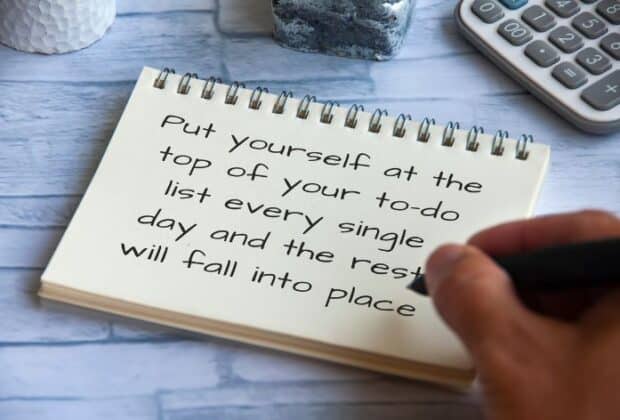 Put yourself at the
top of your to-do
list every single
day and the rest
will fall into place
0
00
1
2
3
5
6
=
+